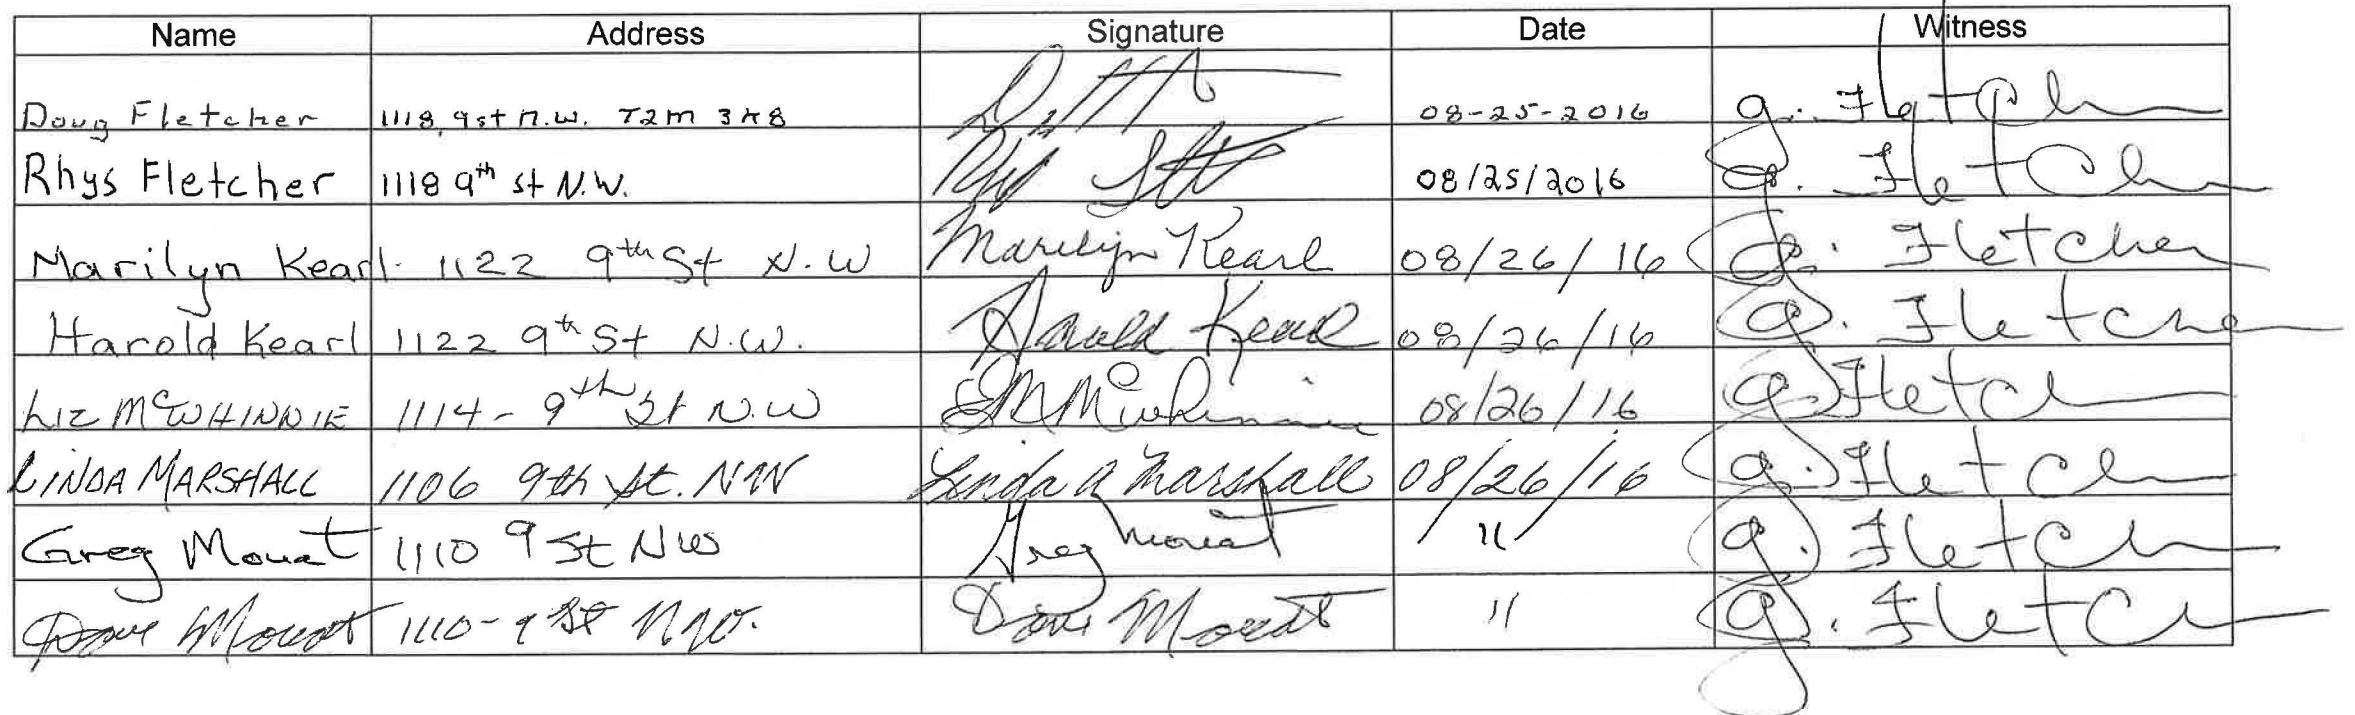 Name Address Signature Date Witness
Doug Fletcher 1118, 9st N.W. T2M 3K8 08-25-2016 g. Fletcher
Rhys Fletcher 1118 9th st N.W. 08/25/2016 g. Fletcher
Marilyn Kearl. 1122 9th St N.W Marilyn Kearl 08/26/16 g. Fletcher
Harold Kearl 1122 9th St N.W. Harold Kearl 08/26/16 g. Fletcher
Liz McWHINNIE 1114- 9th St N.W EM McWhinnie 08/26/16 g. Fletcher
LINDA MARSHALL 1106 9th St. NW Linda A Marshall 08/26/16 g. Fletcher
Greg Mouat 1110 9 St NW Greg Mouat 11 g. Fletcher
Dave Mouat 1110- 9 St N.W. Dave Mouat 11 g. Fletcher